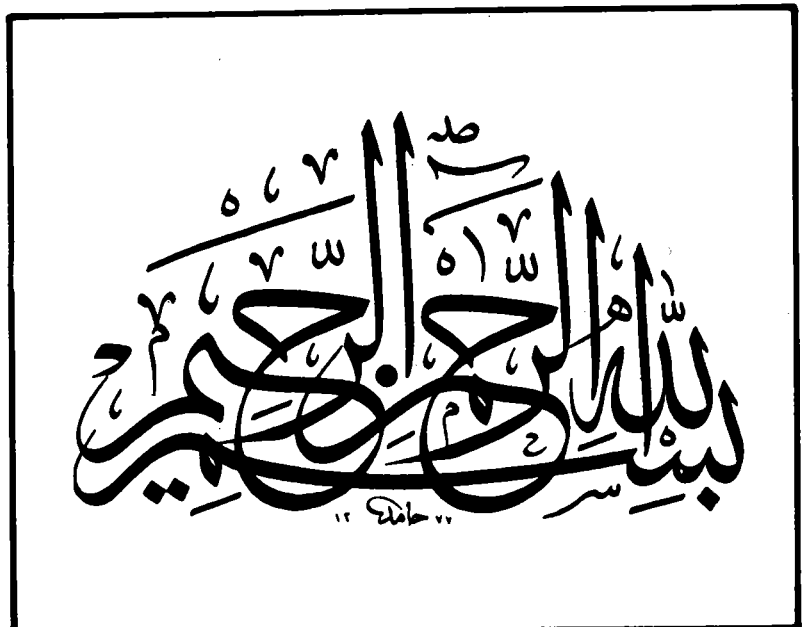 بِسْمِ اللهِ الرَّحْمٰنِ الرَّحِيمِ
حامد ١٣٧٧